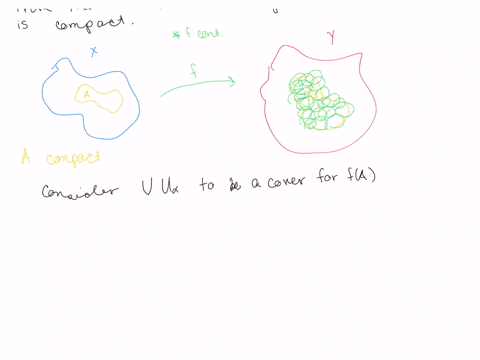 is compact.
* f cont
X
Y
f
A
A compact
Consider ∪ Uα to be a cover for f(A)